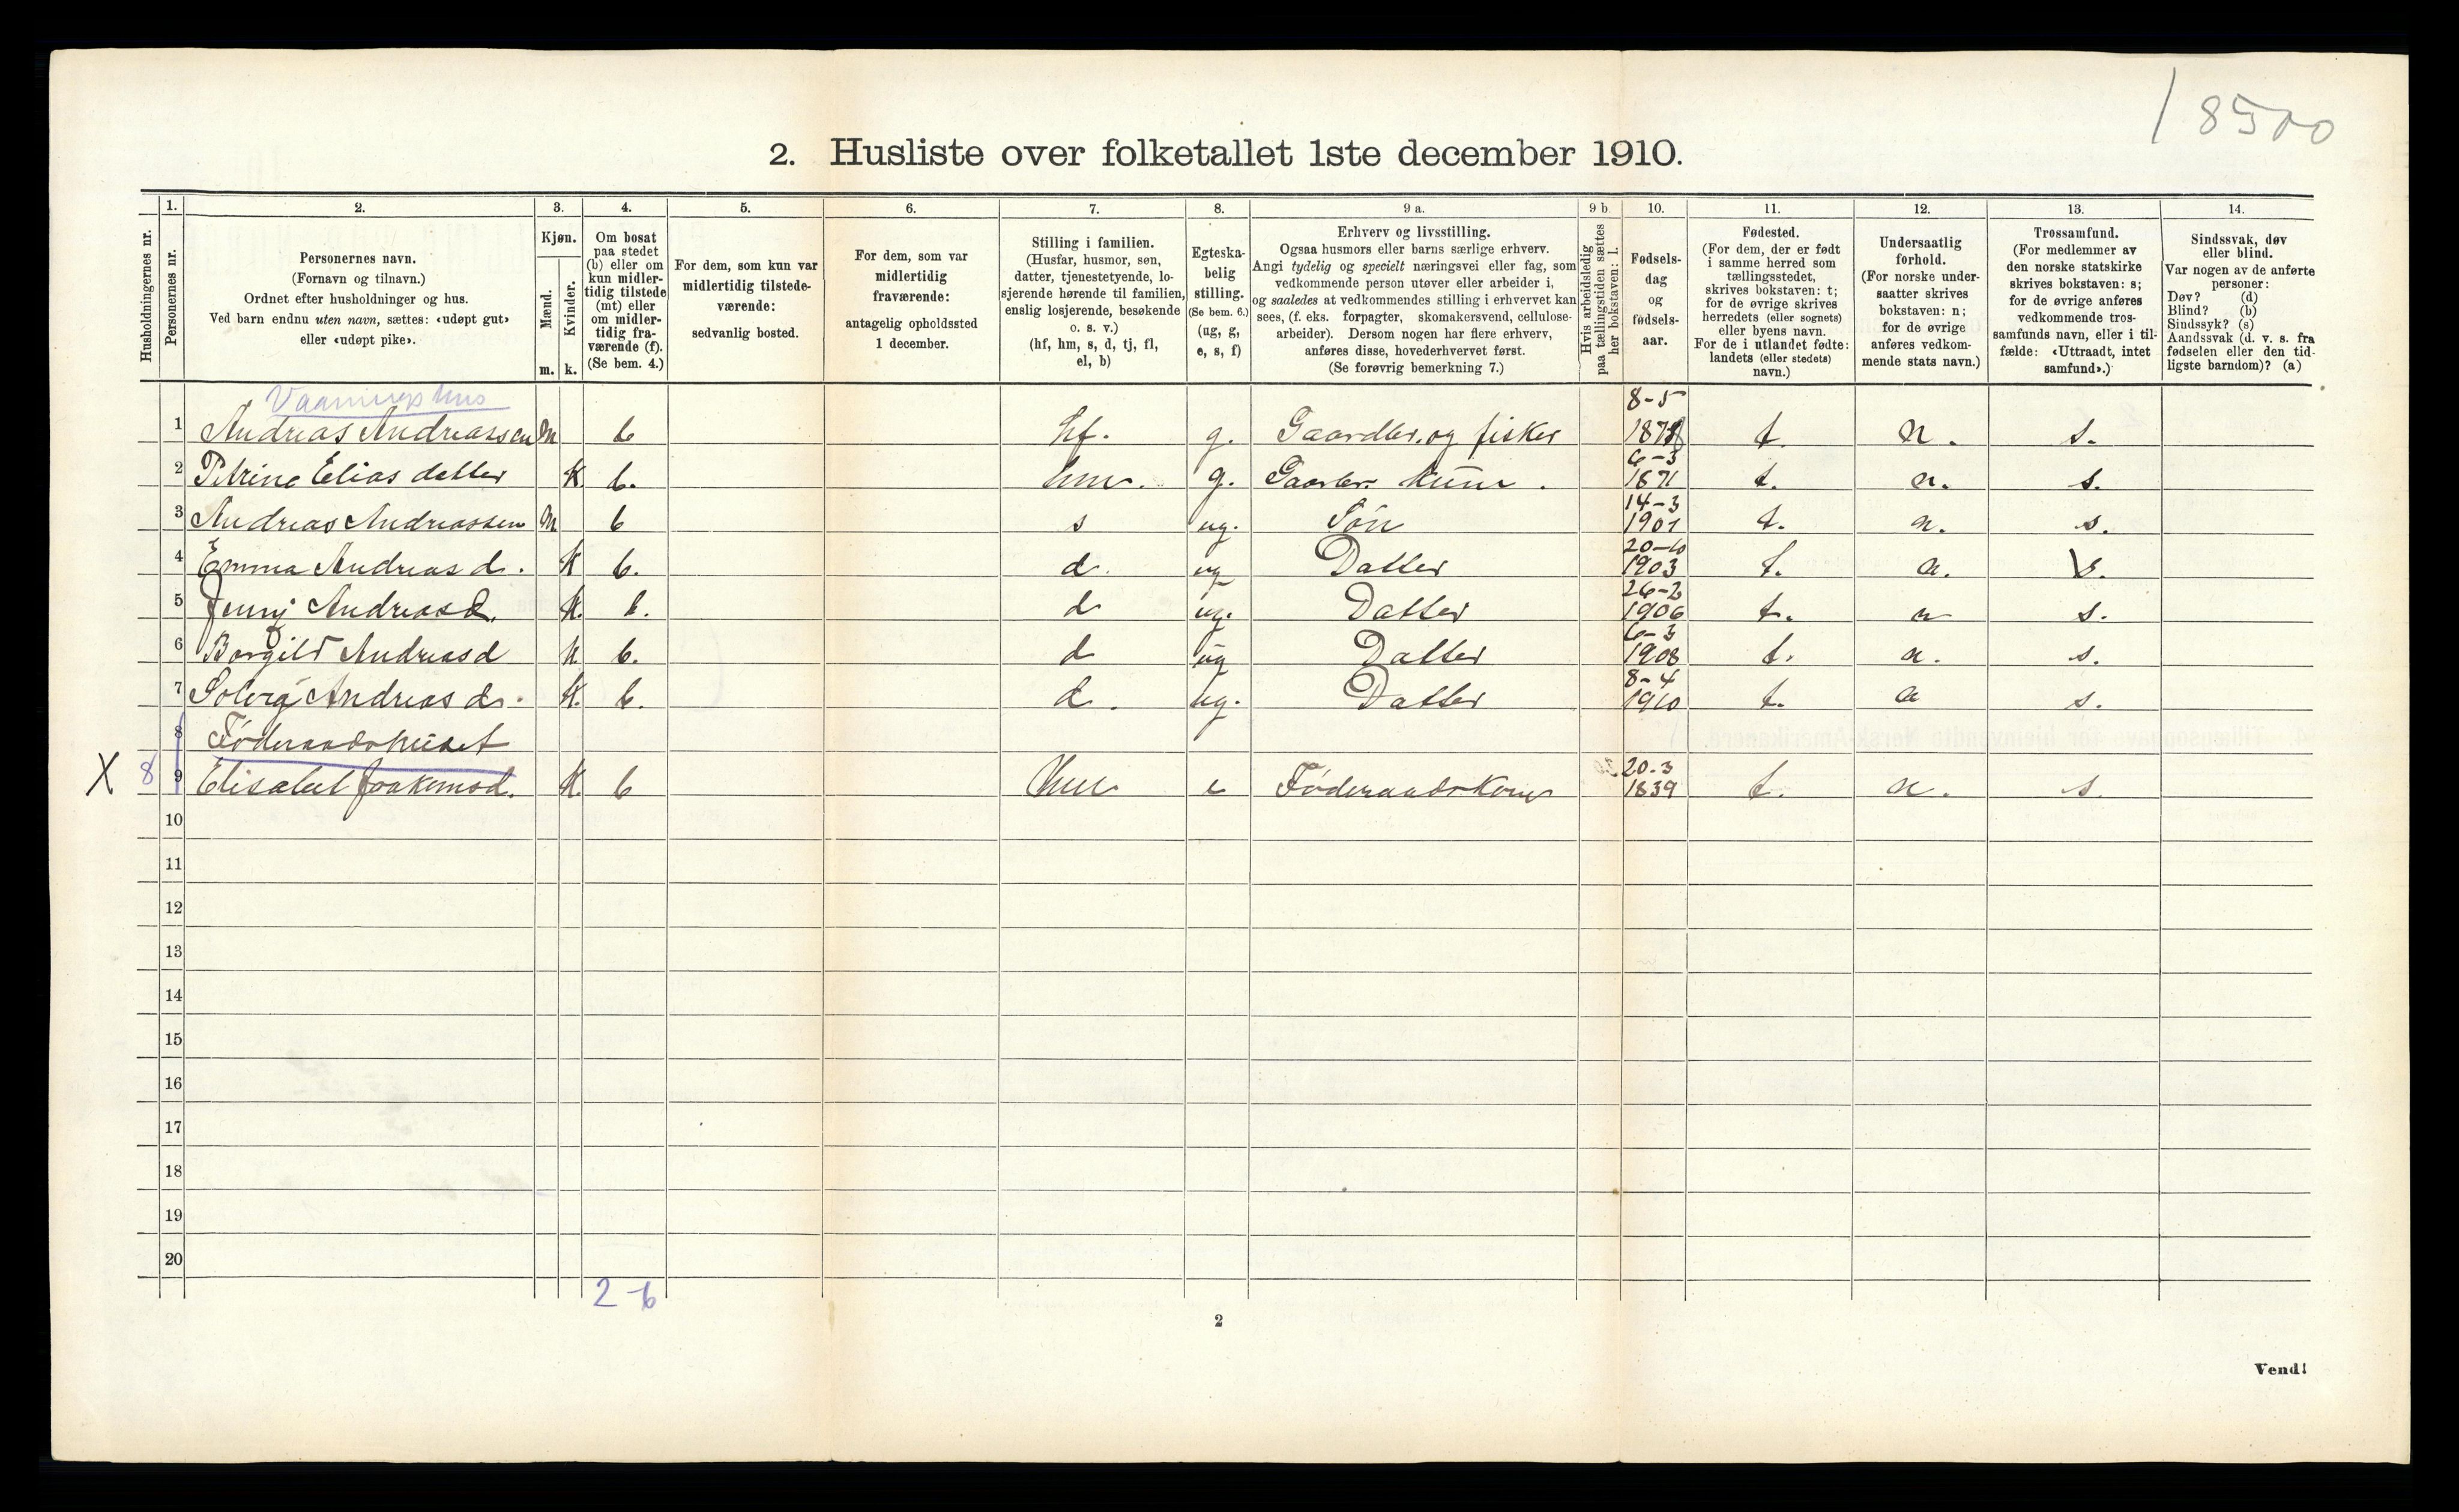 18500
2. Husliste over folketallet 1ste december 1910.
Husholdningernes nr.
1. 2. 3. 4. 5. 6. 7. 8. 9 a. 9 b. 10. 11. 12. 13. 14.
Personernes nr.
Personernes navn.
(Fornavn og tilnavn.)
Ordnet efter husholdninger og hus.
Ved barn endnu uten navn, sættes: «udøpt gut»
eller «udøpt pike».
Kjøn.
Mænd.
Kvinder.
m. k.
Om bosat
paa stedet
(b) eller om
kun midler-
tidig tilstede
(mt) eller
om midler-
tidig fra-
værende (f).
(Se bem. 4.)
For dem, som kun var
midlertidig tilstede-
værende:
sedvanlig bosted.
For dem, som var
midlertidig
fraværende:
antagelig opholdssted
1 december.
Stilling i familien.
(Husfar, husmor, søn,
datter, tjenestetyende, lo-
sjerende hørende til familien,
enslig losjerende, besøkende
o. s. v.)
(hf, hm, s, d, tj, fl,
el, b)
Egteska-
belig
stilling.
(Se bem. 6.)
(ug, g,
e, s, f)
Erhverv og livsstilling.
Ogsaa husmors eller barns særlige erhverv.
Angi tydelig og specielt næringsvei eller fag, som
vedkommende person utøver eller arbeider i,
og saaledes at vedkommendes stilling i erhvervet kan
sees, (f. eks. forpagter, skomakersvend, cellulose-
arbeider). Dersom nogen har flere erhverv,
anføres disse, hovederhvervet først.
(Se forøvrig bemerkning 7.)
Hvis arbeidsledig
paa tællingstiden sættes
her bokstaven: l.
Fødsels-
dag
og
fødsels-
aar.
Fødested.
(For dem, der er født
i samme herred som
tællingsstedet,
skrives bokstaven: t;
for de øvrige skrives
herredets (eller sognets)
eller byens navn.
For de i utlandet fødte:
landets (eller stedets)
navn.)
Undersaatlig
forhold.
(For norske under-
saatter skrives
bokstaven: n;
for de øvrige
anføres vedkom-
mende stats navn.)
Trossamfund.
(For medlemmer av
den norske statskirke
skrives bokstaven: s;
for de øvrige anføres
vedkommende tros-
samfunds navn, eller i til-
fælde: «Uttraadt, intet
samfund».)
Sindssvak, døv
eller blind.
Var nogen av de anførte
personer:
Døv? (d)
Blind? (b)
Sindssyk? (s)
Aandssvak (d. v. s. fra
fødselen eller den tid-
ligste barndom)? (a)
Vaaningshus
1 Andreas Andreassen M b hf. g. Gaardbr. og fisker 8-5 t. n. s.
2 Petrine Elias datter K b. hm. g. Gaarbr. kune. 6-3 1871 t. n. s.
3 Andreas Andreassen M b s ug. Sön 14-3 1901 t. n. s.
4 Emma Andreas d. K b. d. ug Datter 1903 t. n. s.
5 Jenny Andreasd. K. b. d ug. Datter 26-2 1906 t. n s.
6 Borgild Andreasd K b. d ug Datter 6-3 1908 t. n. s.
7 Solveg Andreas d. K. b. d. ug. Datter 8-4 1910 t. n s.
8 Föderaadshuset
X 8 9 Elisabet Joakimsd. K. b hm e Föderaadskone 20.3 1839 t. n. s.
10
11
12
13
14
15
16
17
18
19
20
2-6
2
Vend!